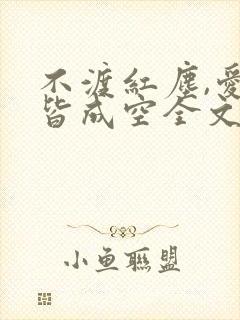 不渡红尘,爱
皆成空全文
小鱼联盟